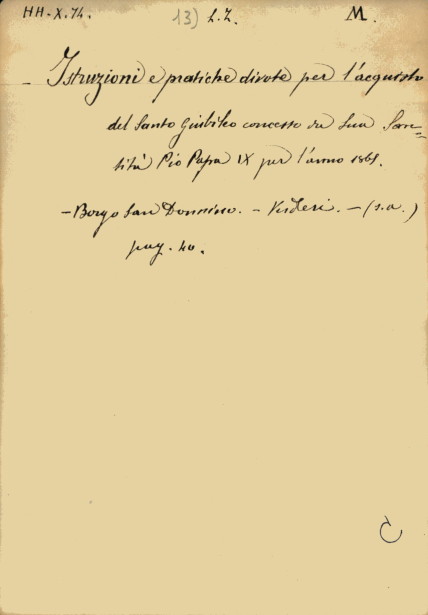 HH-X.74. 13) L.Z. M.
- Istruzioni e pratiche divote per l'acquisto
del Santo Giubileo concesso da Sua San=
tità Pio Papa IX per l'anno 1865.
- Borgo San Donnino. - Verderi. - (s.a.)
pag. 40.